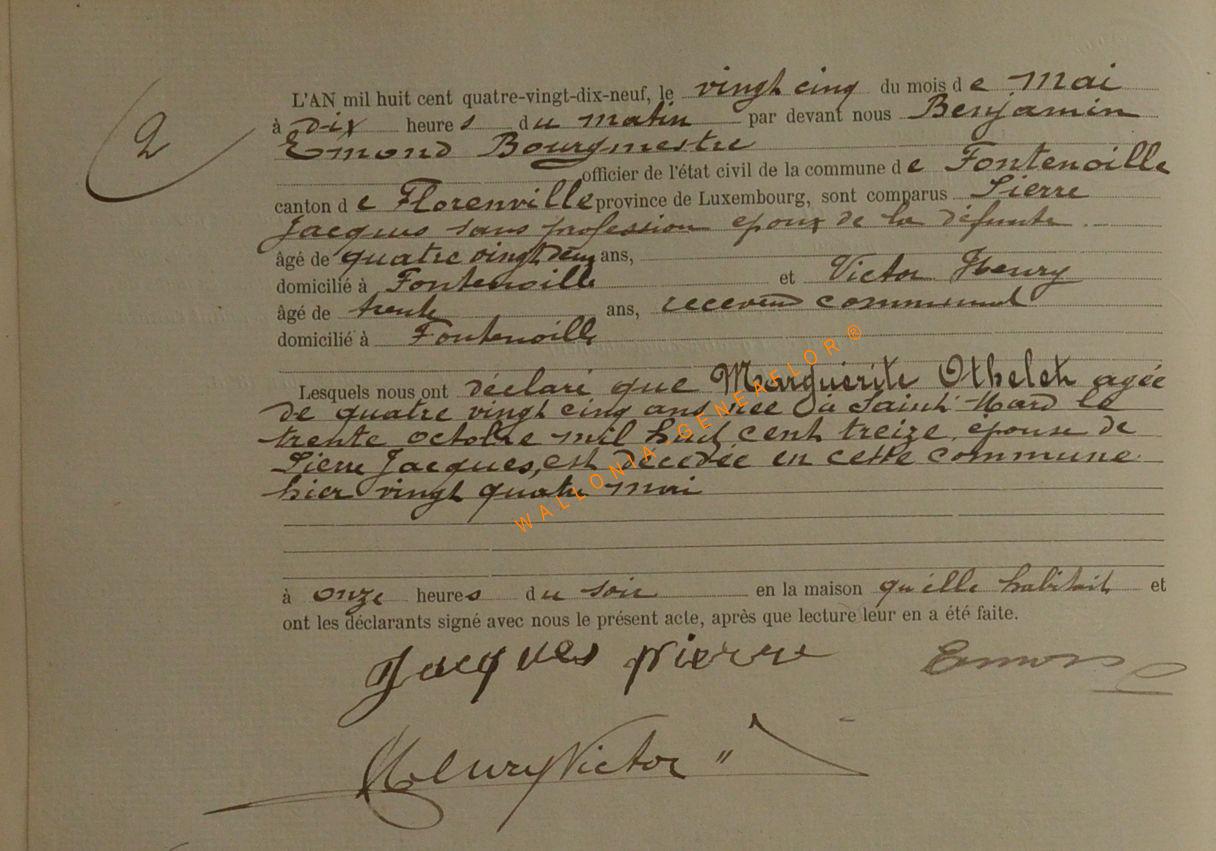 2
L'AN mil huit cent quatre-vingt-dix-neuf, le vingt cinq du mois de Mai
à dix heures du matin par devant nous Benjamin
Emond Bourgmestre
officier de l'état civil de la commune de Fontenoille
canton de Florenville province de Luxembourg, sont comparus Pierre
Jacques sans profession epoux de la défunte
âgé de quatre vingt deux ans,
domicilié à Fontenoille et Victor Henry
âgé de trente ans, receveur communal
domicilié à Fontenoille
Lesquels nous ont déclaré que Marguérite Othelet agée
de quatre vingt cinq ans née à Saint Mard le
trente octobre mil huit cent treize, épouse de
Pierre Jacques, est décedée en cette commune
hier vingt quatre mai
à onze heures du soir en la maison qu'elle habitait et
ont les déclarants signé avec nous le présent acte, après que lecture leur en a été faite.
Jacques pierre Emond
Henry Victor
WALLONIA-GENEAFLOR®